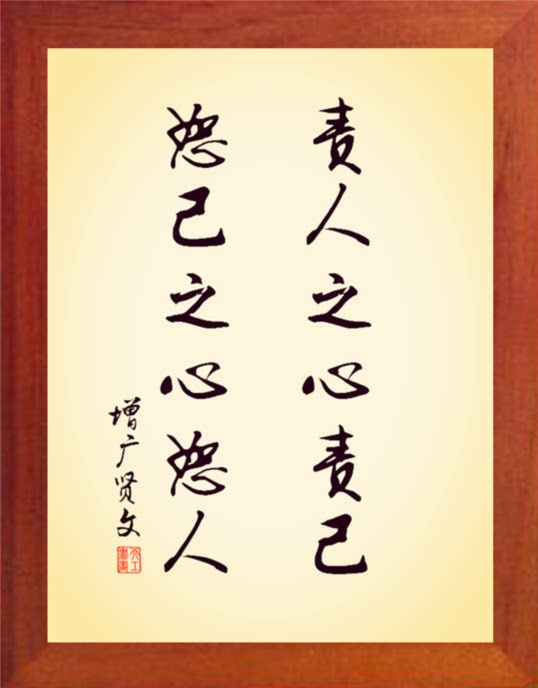 责人之心责己
恕己之心恕人
增广贤文